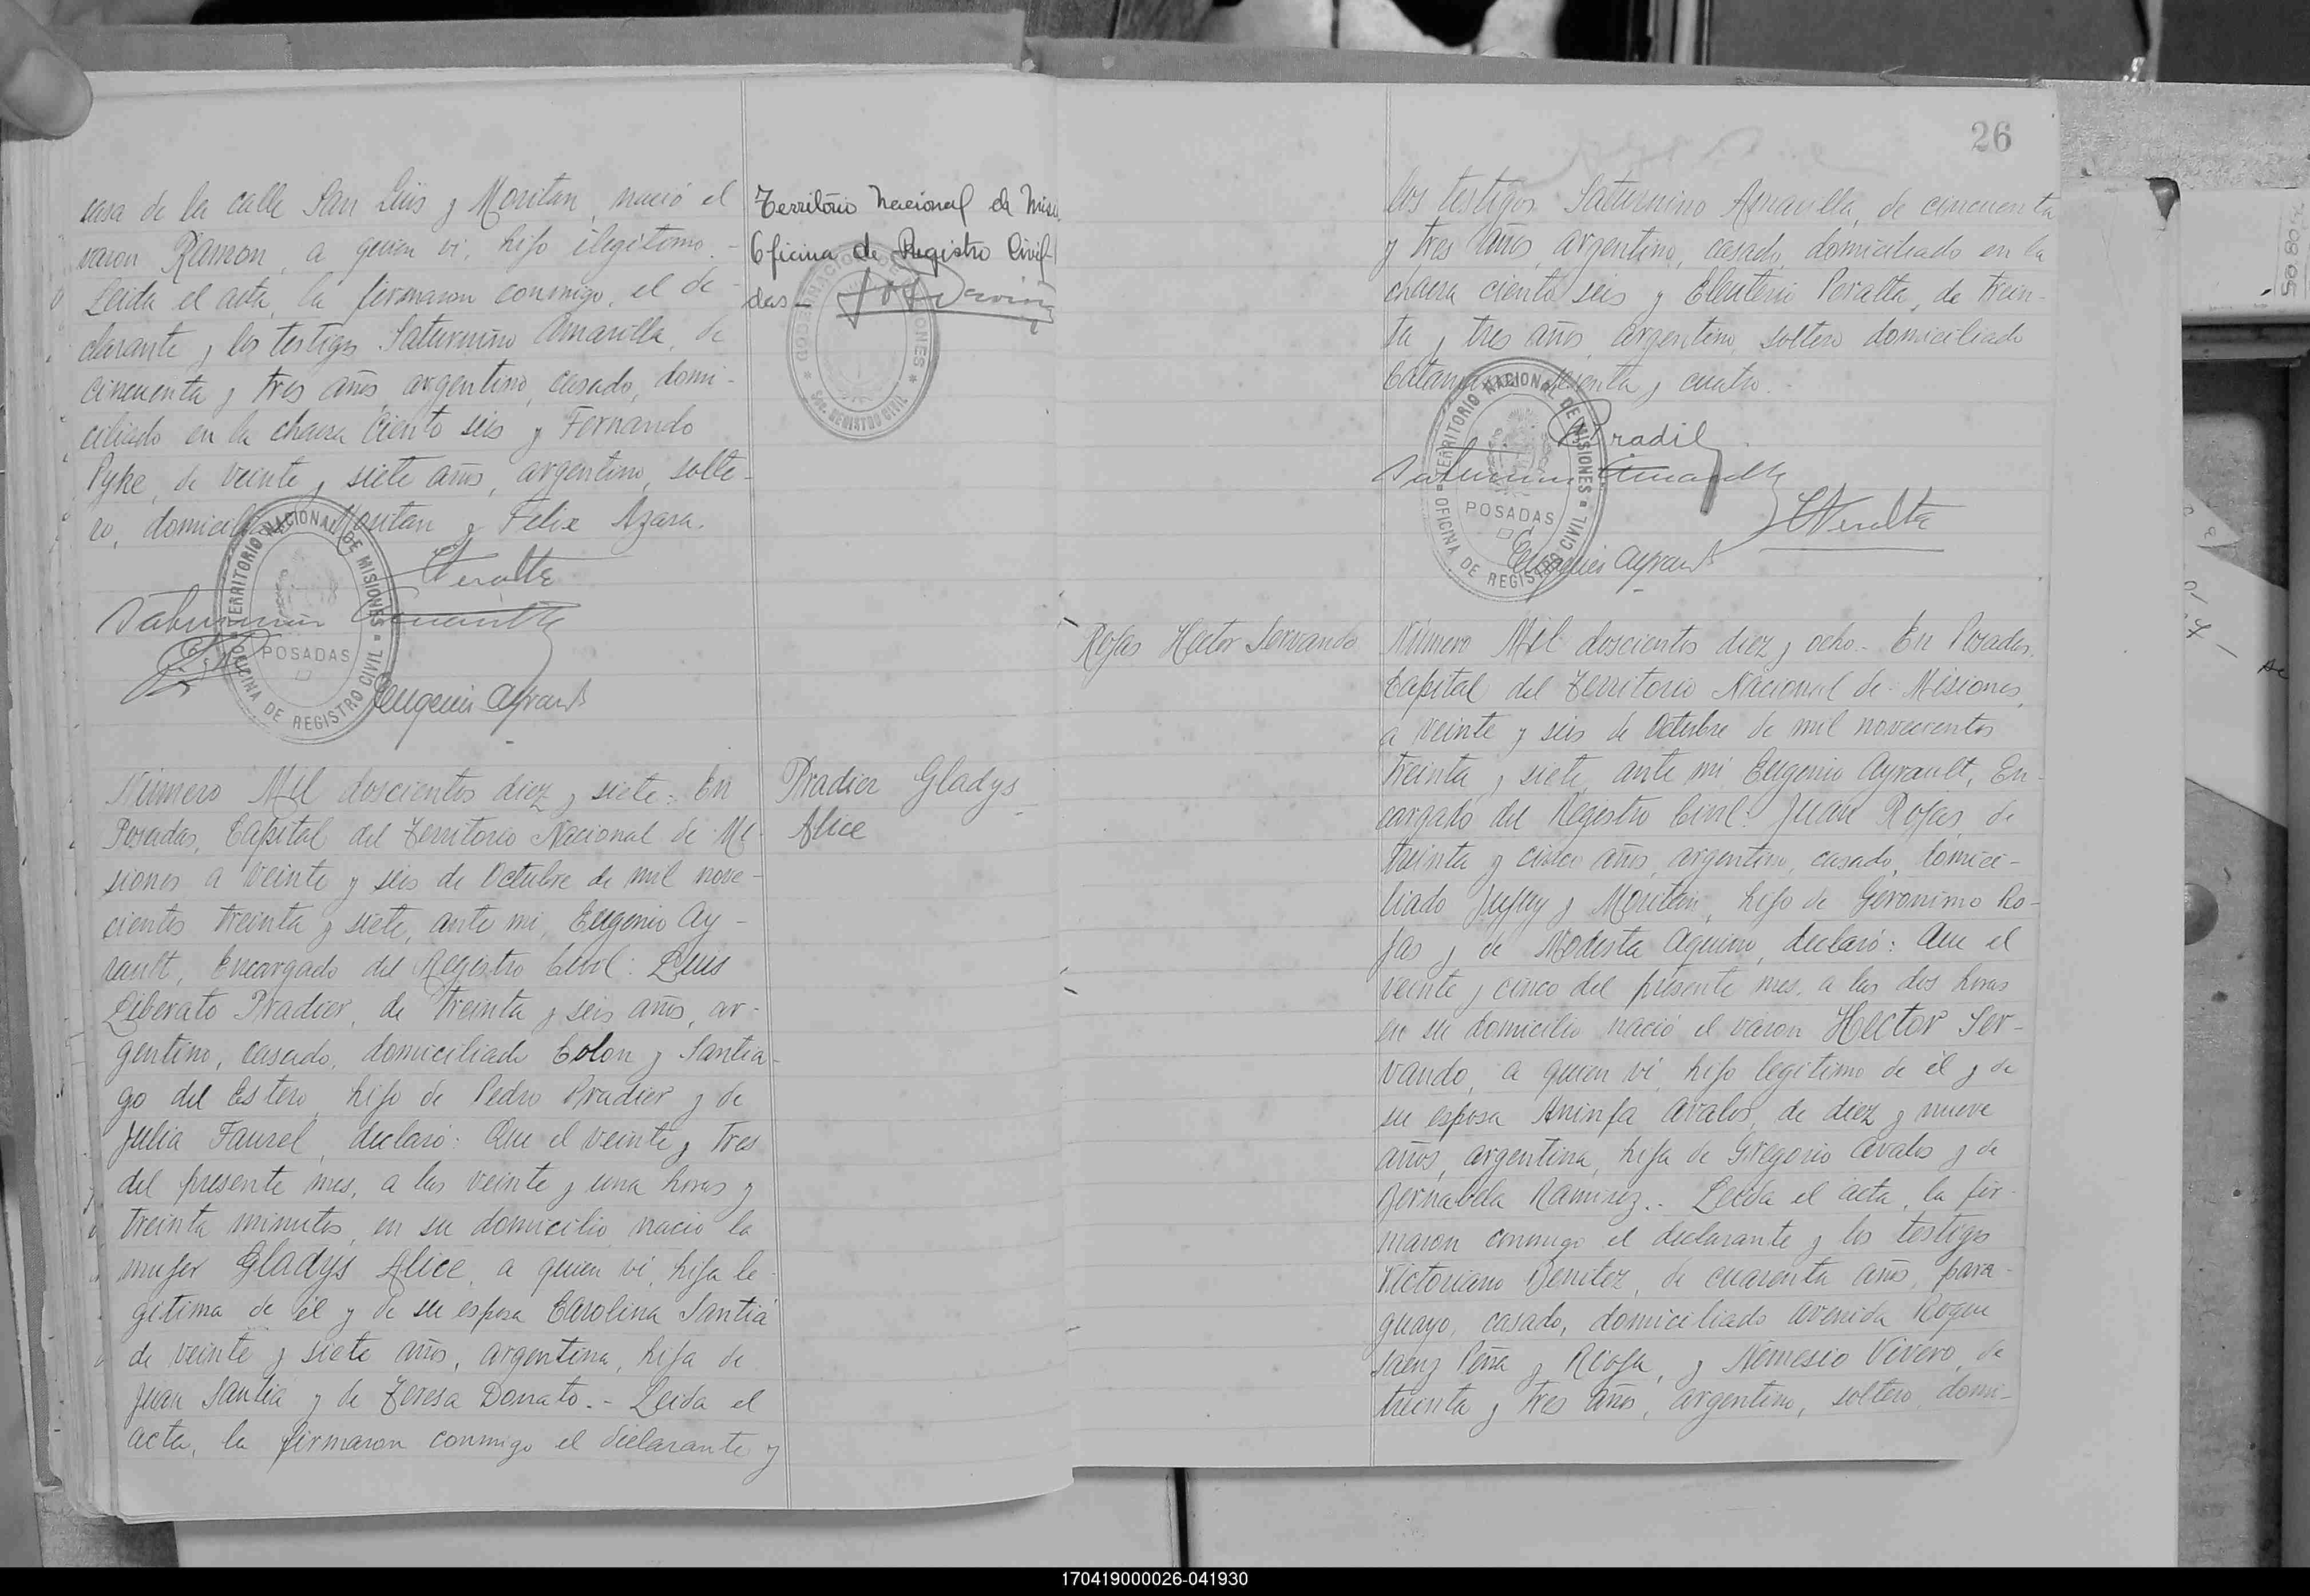 casa de la calle San Luis y Moritan, nació el
varon Ramon, a quien vi, hijo ilegitimo.-
Leida el acta, la firmaron conmigo, el de-
clarante y los testigos Saturnino Amarilla, de
cincuenta y tres años, argentino, casado, domi-
ciliado en la chacra ciento seis y Fernando
Pyke, de veinte y siete años, argentino, solte-
ro, domiciliado Moritan y Felix Azara.
EPeralta
Saturnino Amarilla
Eugenio Ayrault
TERRITORIO NACIONAL DE MISIONES
POSADAS
OFICINA DE REGISTRO CIVIL
Número Mil doscientos diez y siete:- En
Posadas, Capital del Territorio Nacional de Mi-
siones a veinte y seis de Octubre de mil nove-
cientos treinta y siete, ante mi, Eugenio Ay-
rault, Encargado del Registro Civil: Luis
Liberato Pradier, de treinta y seis años, ar-
gentino, casado, domiciliado Colon y Santia-
go del Estero, hijo de Pedro Pradier y de
Julia Faurel, declaró: Que el veinte y tres
del presente mes, a las veinte y una horas y
treinta minutos, en su domicilio, nació la
mujer Gladys Alice, a quien vi, hija le-
gitima de él y de su esposa Carolina Santiá
de veinte y siete años, argentina, hija de
Juan Santia y de Teresa Donato.- Leida el
acta, la firmaron conmigo el declarante y
Territorio Nacional de Misio
Oficina de Registro Civil
das-
GOBERNACION MISIONES
Sec. REGISTRO CIVIL
Pradier Gladys
Alice
26
los testigos Saturnino Amarilla, de cincuenta
y tres años, argentino, casado, domiciliado en la
chacra ciento seis y Eleuterio Peralta, de trein-
ta y tres años, argentino soltero domiciliado
Catamarca y cuatro.
Pradier
Saturnino Amarilla
EPeralta
Eugenio Ayrault
TERRITORIO NACIONAL DE MISIONES
POSADAS
OFICINA DE REGISTRO CIVIL
Rojas Hector Servando
Número Mil doscientos diez y ocho.- En Posadas,
Capital del Territorio Nacional de Misiones,
a veinte y seis de Octubre de mil novecientos
treinta y siete, ante mi Eugenio Ayrault, En-
cargado del Registro Civil: Juan Rojas, de
treinta y cinco años, argentino, casado, domici-
liado Jujuy y Moritan, hijo de Geronimo Ro-
jas y de Modesta Aquino, declaró: Que el
veinte y cinco del presente mes, a las dos horas
en su domicilio nació el varon Hector Ser-
vando, a quien vi, hijo legitimo de él y de
su esposa Aninfa Avalos, de diez y nueve
años, argentina, hija de Gregorio Avalos y de
Bernabela Ramirez.- Leida el acta, la fir-
maron conmigo el declarante y los testigos
Victoriano Benitez, de cuarenta años, para-
guayo, casado, domiciliado avenida Roque
Saenz Peña y Rioja, y Nemesio Vivero, de
treinta y tres años, argentino, soltero, domi-
170419000026-041930